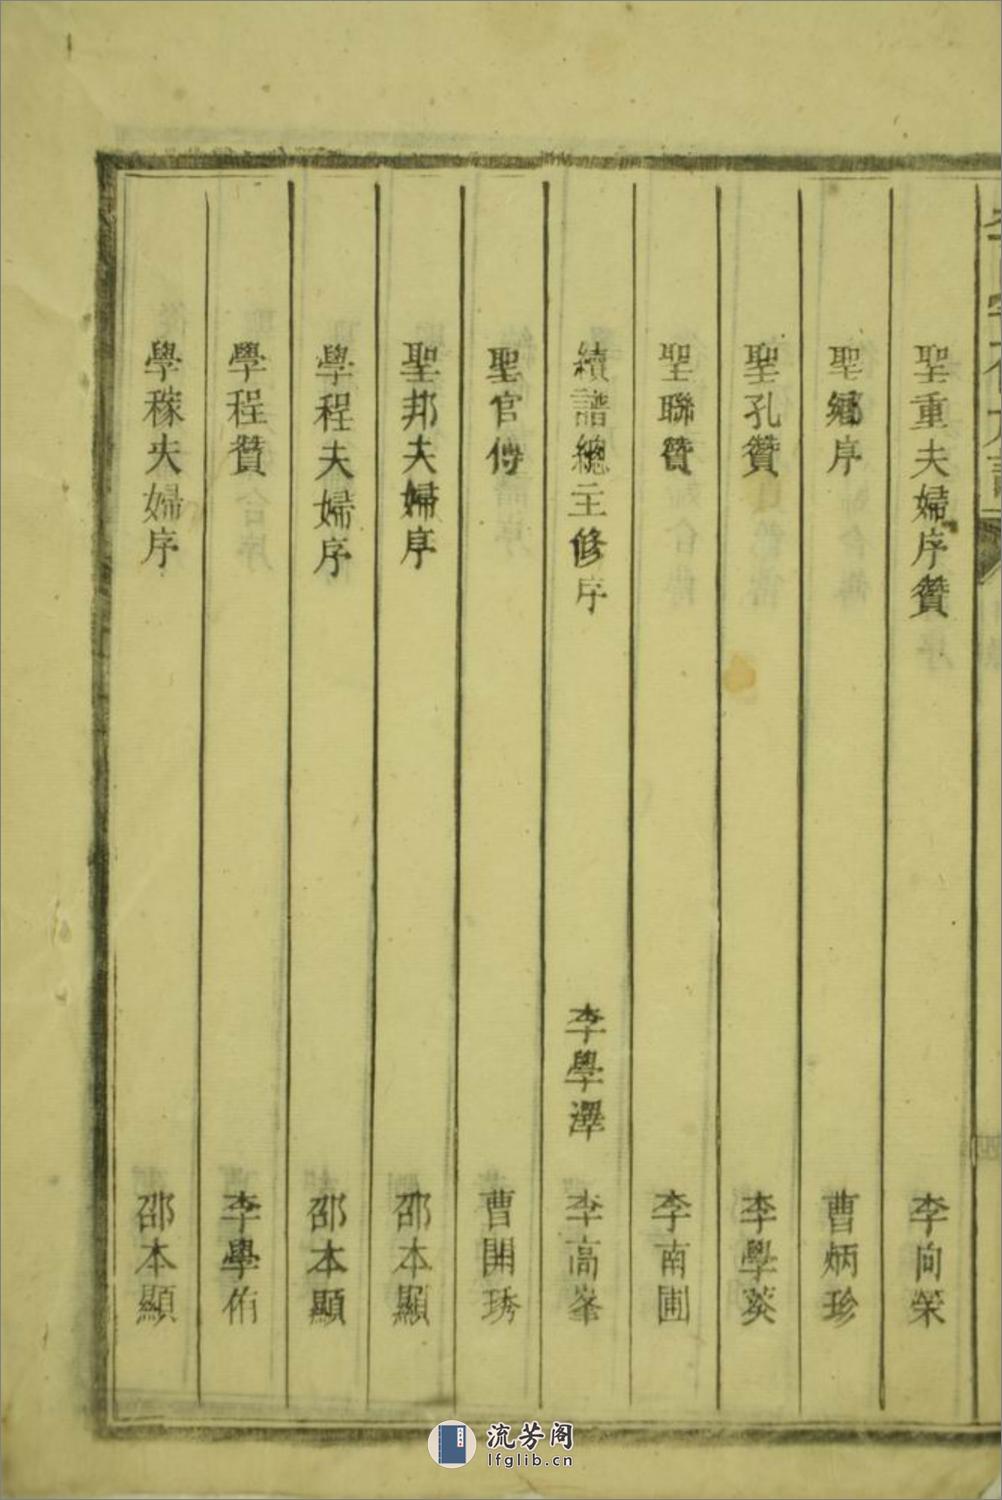 聖重夫婦序贊 李向榮
聖鄉序 曹炳珍
聖孔贊 李學葵
聖聯贊 李南圃
續譜總主修序 李學澤 李高峯
聖官傳 曹開琇
聖邦夫婦序 邵本顯
學程夫婦序 邵本顯
學程贊 李學侑
學稼夫婦序 邵本顯
流芳阁
lfglib.cn